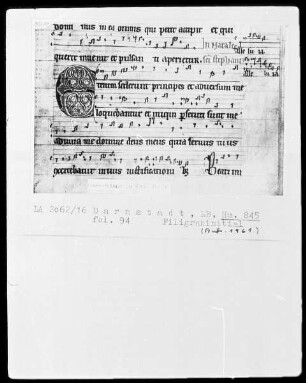 domi nus in ea omnis qui petit accipit et qui
querit invenit et pulsan ti aperietur.
Alle lu ia
Sci stephani
Alle lu ia
Etenim sederunt principes et adversum me
loquebantur et iniqui persecuti sunt me
adiuva me domine deus meus quia servus tuus
exercebatur in tuis iustificationi bus
Beati im
LA 2062/16 Darmstadt, LB, Hs. 845
fol. 94 Filigraninitial